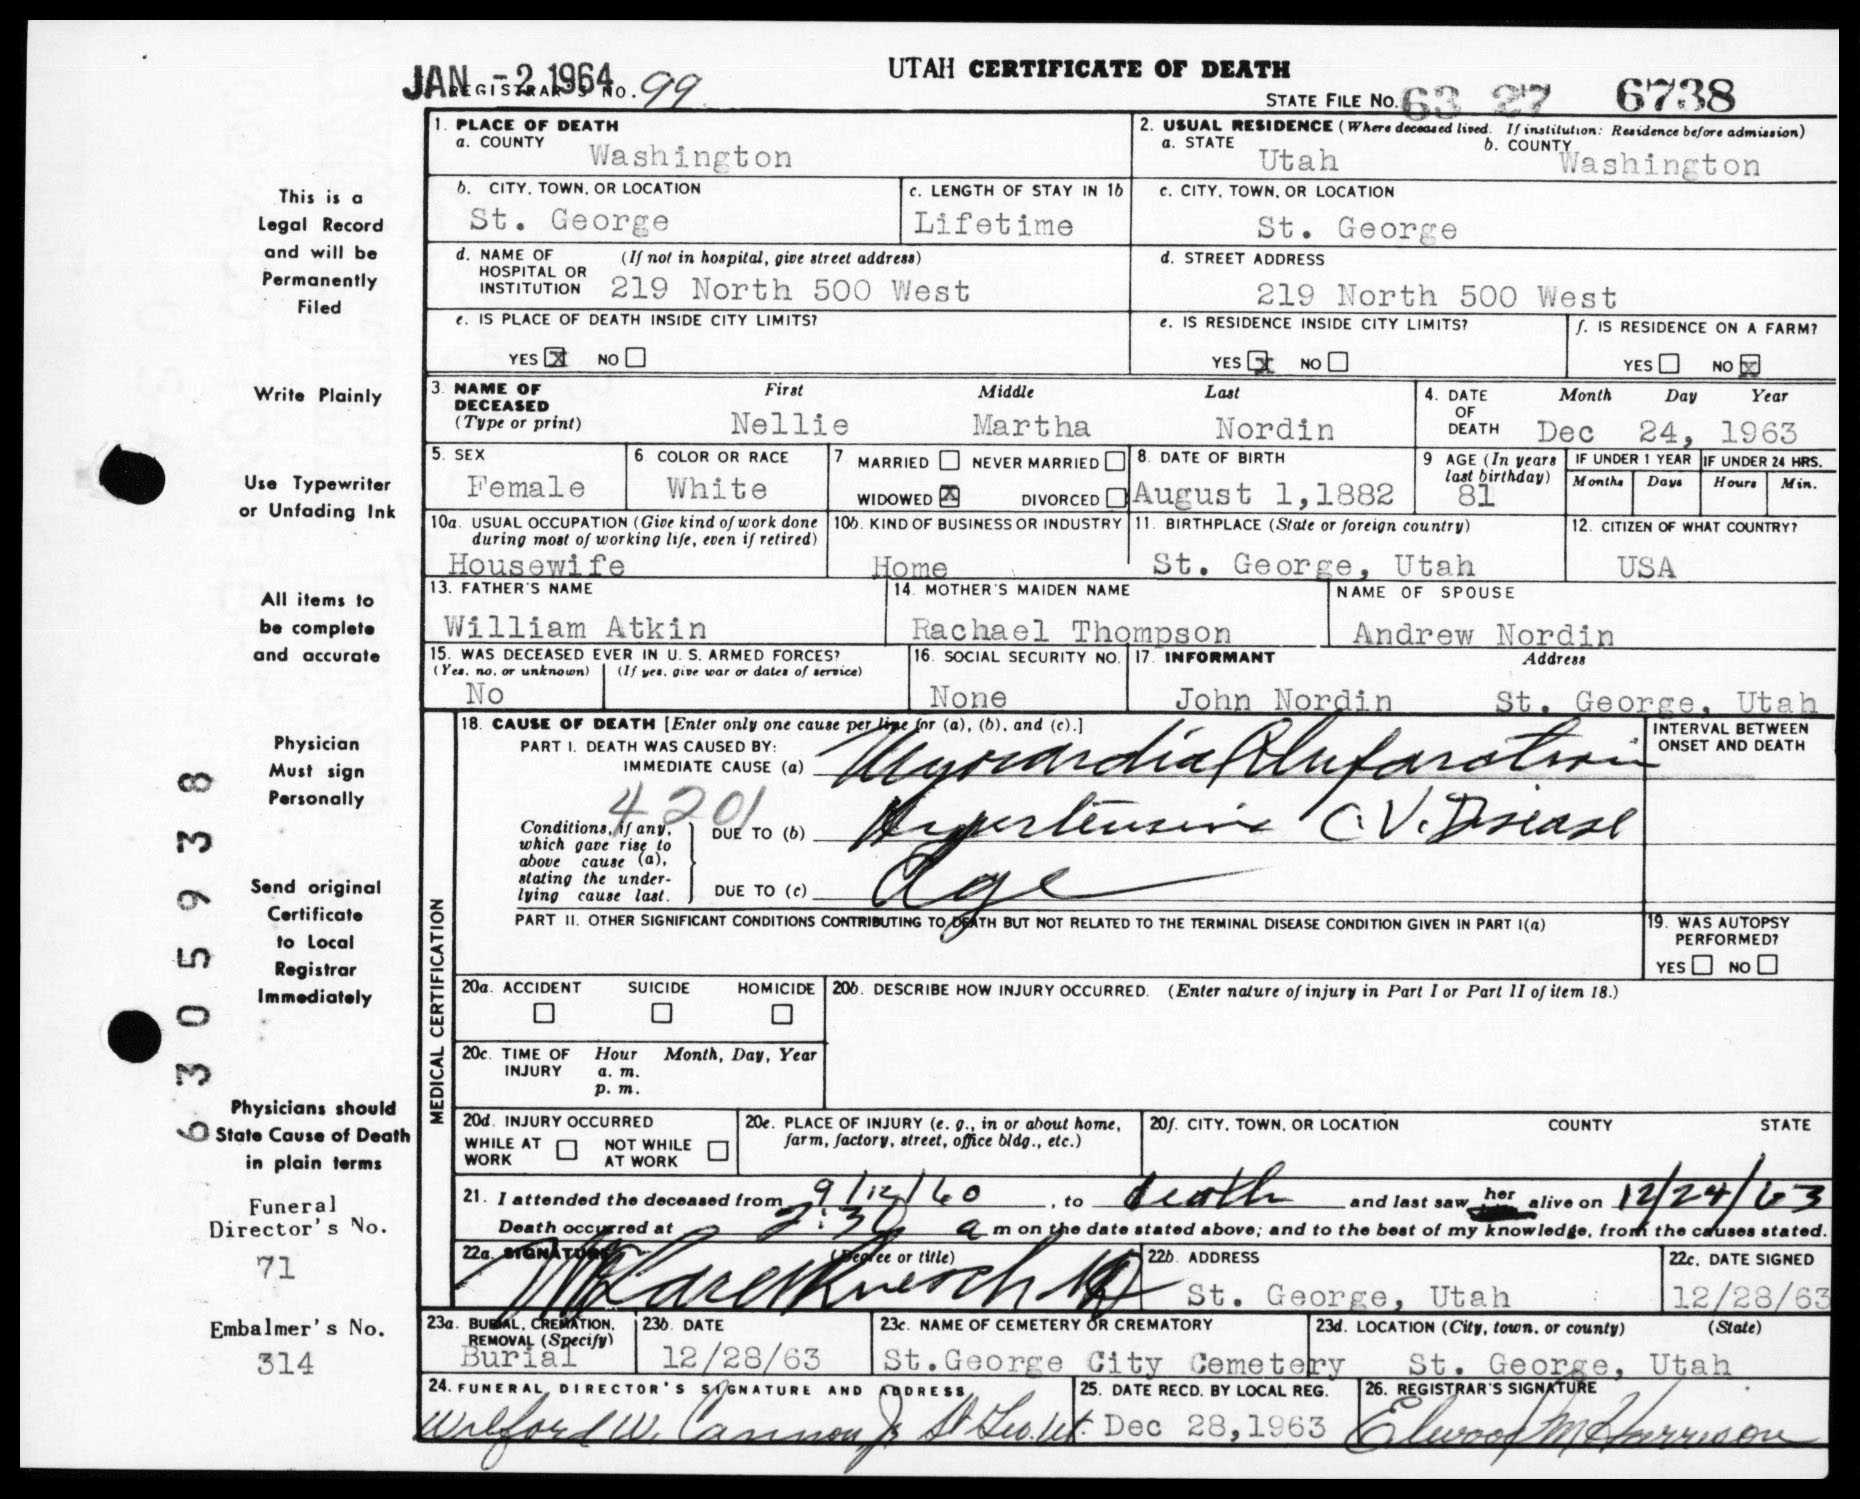 UTAH CERTIFICATE OF DEATH
JAN -2 1964
REGISTRAR'S NO. 99
STATE FILE NO. 63 27 6738
1. PLACE OF DEATH
a. COUNTY Washington
2. USUAL RESIDENCE (Where deceased lived. If institution: Residence before admission)
a. STATE Utah b. COUNTY Washington
b. CITY, TOWN, OR LOCATION St. George
c. LENGTH OF STAY IN 1b Lifetime
c. CITY, TOWN, OR LOCATION St. George
d. NAME OF HOSPITAL OR INSTITUTION (If not in hospital, give street address) 219 North 500 West
d. STREET ADDRESS 219 North 500 West
e. IS PLACE OF DEATH INSIDE CITY LIMITS?
YES X NO
e. IS RESIDENCE INSIDE CITY LIMITS?
YES X NO
f. IS RESIDENCE ON A FARM?
YES NO X
3. NAME OF DECEASED (Type or print)
First Middle Last
Nellie Martha Nordin
4. DATE OF DEATH Month Day Year
Dec 24, 1963
5. SEX Female
6. COLOR OR RACE White
7 MARRIED NEVER MARRIED
WIDOWED X DIVORCED
8. DATE OF BIRTH August 1, 1882
9 AGE (In years last birthday) 81
IF UNDER 1 YEAR Months Days
IF UNDER 24 HRS. Hours Min.
10a. USUAL OCCUPATION (Give kind of work done during most of working life, even if retired) Housewife
10b. KIND OF BUSINESS OR INDUSTRY Home
11. BIRTHPLACE (State or foreign country) St. George, Utah
12. CITIZEN OF WHAT COUNTRY? USA
13. FATHER'S NAME William Atkin
14. MOTHER'S MAIDEN NAME Rachael Thompson
NAME OF SPOUSE Andrew Nordin
15. WAS DECEASED EVER IN U. S. ARMED FORCES?
(Yes, no, or unknown) (If yes, give war or dates of service)
No
16. SOCIAL SECURITY NO. None
17. INFORMANT Address
John Nordin St. George, Utah
MEDICAL CERTIFICATION
18. CAUSE OF DEATH [Enter only one cause per line for (a), (b), and (c).]
INTERVAL BETWEEN ONSET AND DEATH
PART I. DEATH WAS CAUSED BY:
IMMEDIATE CAUSE (a) Myocardial Infarction
4201
Conditions, if any, which gave rise to above cause (a), stating the underlying cause last.
DUE TO (b) Hypertensive C.V. Disease
DUE TO (c) Age
PART II. OTHER SIGNIFICANT CONDITIONS CONTRIBUTING TO DEATH BUT NOT RELATED TO THE TERMINAL DISEASE CONDITION GIVEN IN PART I(a)
19. WAS AUTOPSY PERFORMED?
YES NO
20a. ACCIDENT SUICIDE HOMICIDE
20b. DESCRIBE HOW INJURY OCCURRED. (Enter nature of injury in Part I or Part II of item 18.)
20c. TIME OF INJURY Hour Month, Day, Year
a. m.
p. m.
20d. INJURY OCCURRED
WHILE AT WORK NOT WHILE AT WORK
20e. PLACE OF INJURY (e. g., in or about home, farm, factory, street, office bldg., etc.)
20f. CITY, TOWN, OR LOCATION COUNTY STATE
21. I attended the deceased from 9/12/60, to death and last saw her alive on 12/24/63
Death occurred at 2:30 a m on the date stated above; and to the best of my knowledge, from the causes stated.
22a. SIGNATURE (Degree or title)
22b. ADDRESS St. George, Utah
22c. DATE SIGNED 12/28/63
23a. BURIAL, CREMATION, REMOVAL (Specify) Burial
23b. DATE 12/28/63
23c. NAME OF CEMETERY OR CREMATORY St.George City Cemetery
23d. LOCATION (City, town, or county) (State) St. George, Utah
24. FUNERAL DIRECTOR'S SIGNATURE AND ADDRESS
Wilford W. Cannon Jr St Geo. Ut.
25. DATE RECD. BY LOCAL REG. Dec 28, 1963
26. REGISTRAR'S SIGNATURE
Elwood M Harrison
This is a
Legal Record
and will be
Permanently
Filed
Write Plainly
Use Typewriter
or Unfading Ink
All items to
be complete
and accurate
Physician
Must sign
Personally
Send original
Certificate
to Local
Registrar
Immediately
Physicians should
State Cause of Death
in plain terms
Funeral
Director's No.
71
Embalmer's No.
314
6305938